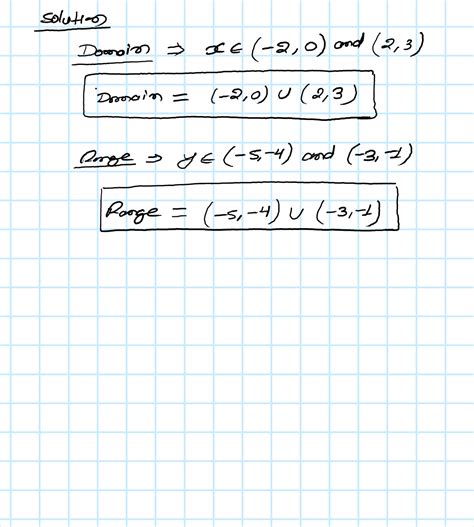 Solution
Domain ⇒ x ∈ (-2, 0) and (2, 3)
Domain = (-2, 0) ∪ (2, 3)
Range ⇒ y ∈ (-5, -4) and (-3, -1)
Range = (-5, -4) ∪ (-3, -1)